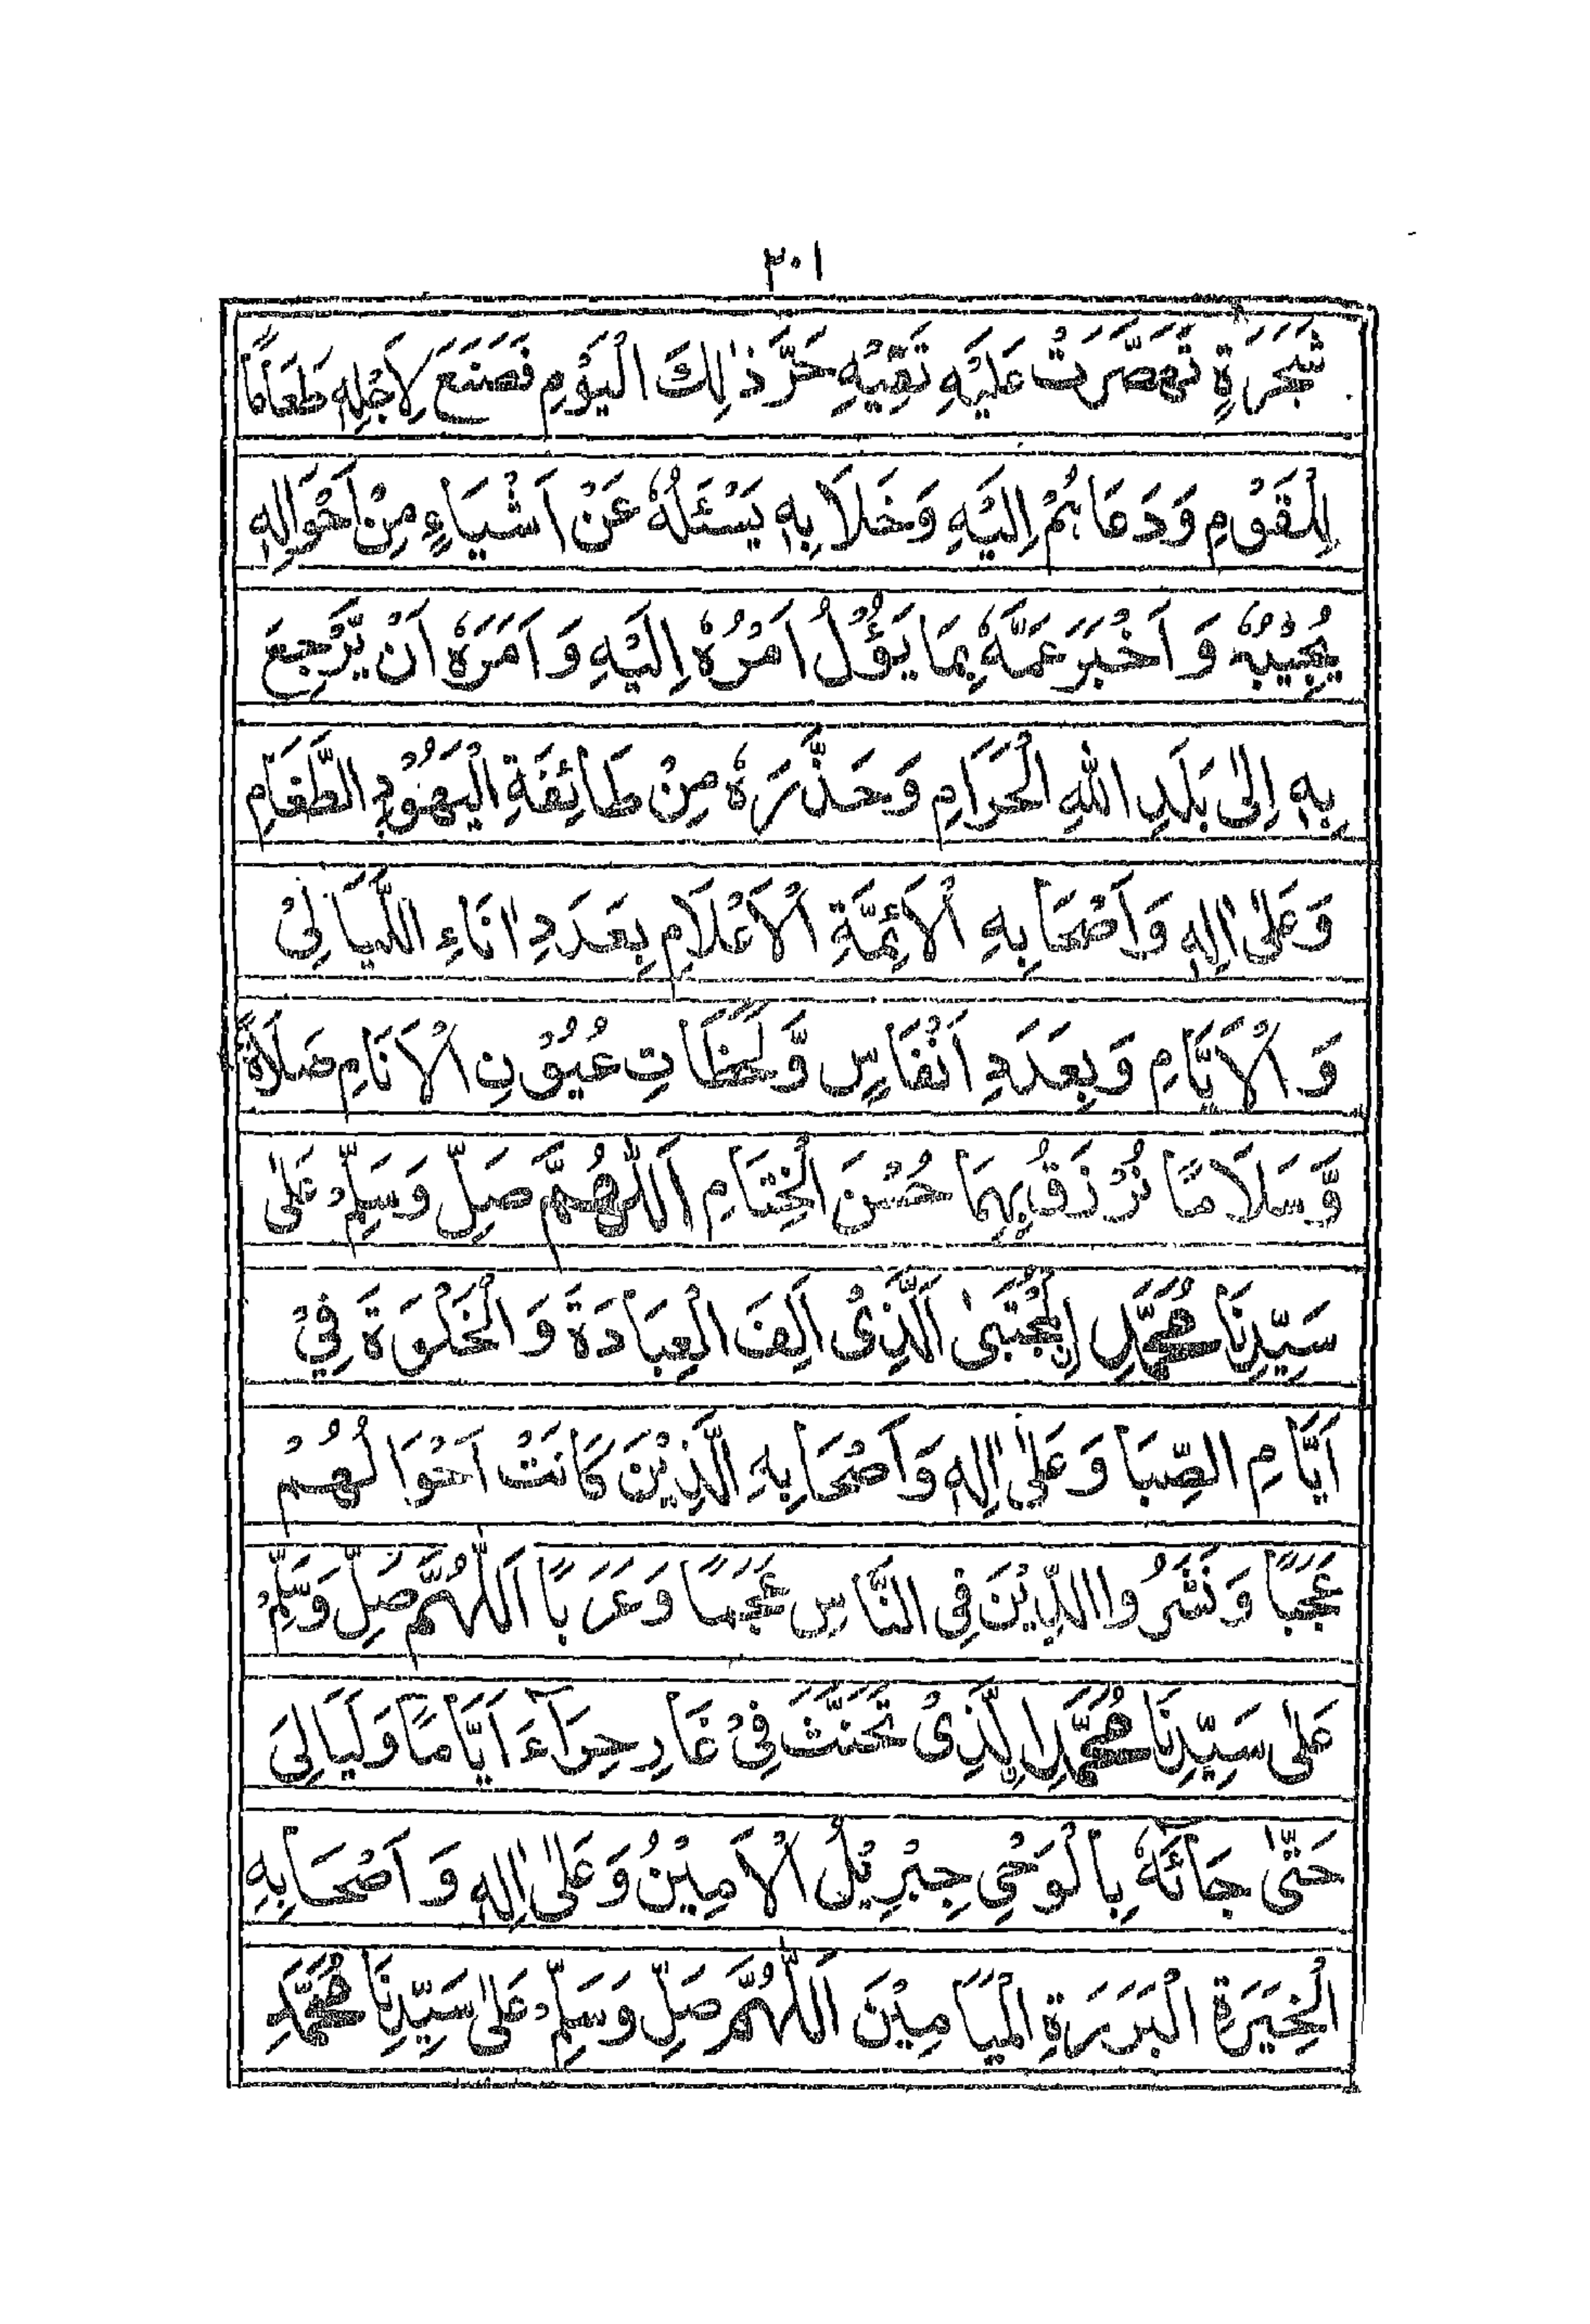 ٣٠١
شَجَرَةٍ تَهَصَّرَتْ عَلَيْهِ تَقِيْهِ حَرَّ ذٰلِكَ الْيَوْمِ فَصَنَعَ لِاَجْلِهٖ طَعَامًا
لِلْقَوْمِ وَدَعَاهُمْ اِلَيْهِ وَخَلَا بِهٖ يَسْئَلُهٗ عَنْ اَشْيَاءٍ مِنْ اَحْوَالِهٖ
يُجِيْبُهٗ وَ اَخْبَرَ عَمَّهٗ بِمَا يَؤُلُ اَمْرُهٗ اِلَيْهِ وَ اَمَرَهٗ اَنْ يَّرْجِعَ
بِهٖ اِلٰى بَلَدِ اللهِ الْحَرَامِ وَحَذَّرَهٗ مِنْ طَائِفَةِ الْيَهُوْدِ الطَّغَامِ
وَعَلٰى اٰلِهٖ وَاَصْحَابِهِ الْاَئِمَّةِ الْاَعْلَامِ بِعَدَدِ اٰنَاءِ اللَّيَالِىْ
وَ الْاَيَّامِ وَبِعَدَدِ اَنْفَاسٍ وَّلَحَظَاتِ عُيُوْنِ الْاَنَامِ صَلَاةً
وَّسَلَامًا نُرْزَقُ بِهِمَا حُسْنَ الْخِتَامِ اَللّٰهُمَّ صَلِّ وَسَلِّمْ عَلٰى
سَيِّدِنَا مُحَمَّدِ نِ الْمُجْتَبٰى اَلَّذِىْ اَلِفَ الْعِبَادَةَ وَالْخَلْوَةَ فِىْ
اَيَّامِ الصِّبَا وَعَلٰى اٰلِهٖ وَاَصْحَابِهِ الَّذِيْنَ كَانَتْ اَحْوَالُهُمْ
عَجَبًا وَنَشَرُوا الدِّيْنَ فِى النَّاسِ عَجَمًا وَعَرَبًا اَللّٰهُمَّ صَلِّ وَسَلِّمْ
عَلٰى سَيِّدِنَا مُحَمَّدِ نِ الَّذِىْ تَحَنَّثَ فِىْ غَارِ حِرَآءَ اَيَّامًا وَلَيَالِىَ
حَتّٰى جَآئَهٗ بِالْوَحْىِ جِبْرِيْلُ الْاَمِيْنُ وَعَلٰى اٰلِهٖ وَ اَصْحَابِهِ
الْخِيَرَةِ الْبَرَرَةِ الْمَيَامِيْنَ اَللّٰهُمَّ صَلِّ وَسَلِّمْ عَلٰى سَيِّدِنَا مُحَمَّدِ